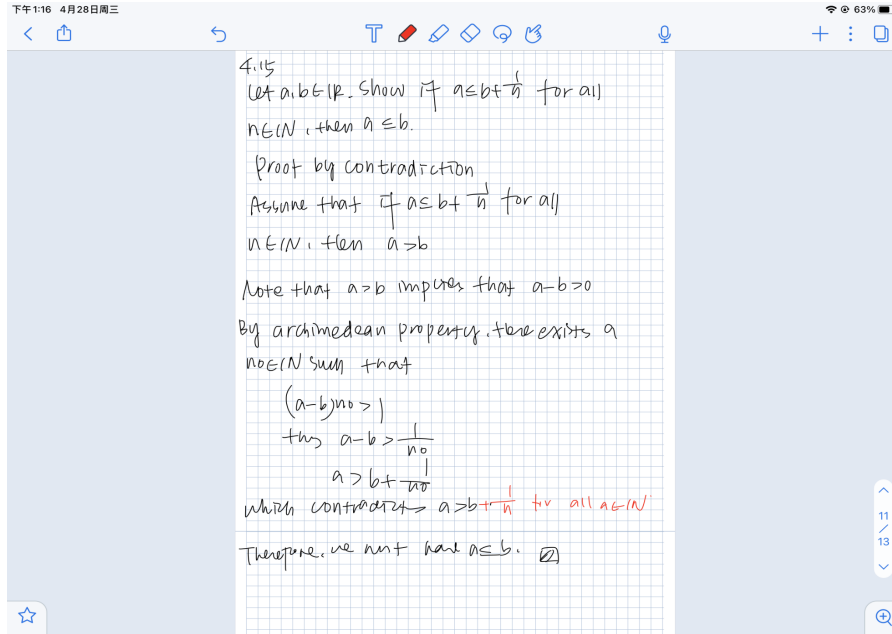 下午1:16 4月28日周三
63%
4.15
Let a,b∈IR. Show if a≤b+1/n for all
n∈IN, then a≤b.
Proof by contradiction
Assume that if a≤b+1/n for all
n∈IN, then a>b
Note that a>b implies that a-b>0
By archimedean property, there exists a
no∈IN such that
(a-b)no>1
thus a-b>1/no
a>b+1/no
which contradicts a>b+1/n for all n∈IN
Therefore, we must have a≤b.
11
/
13